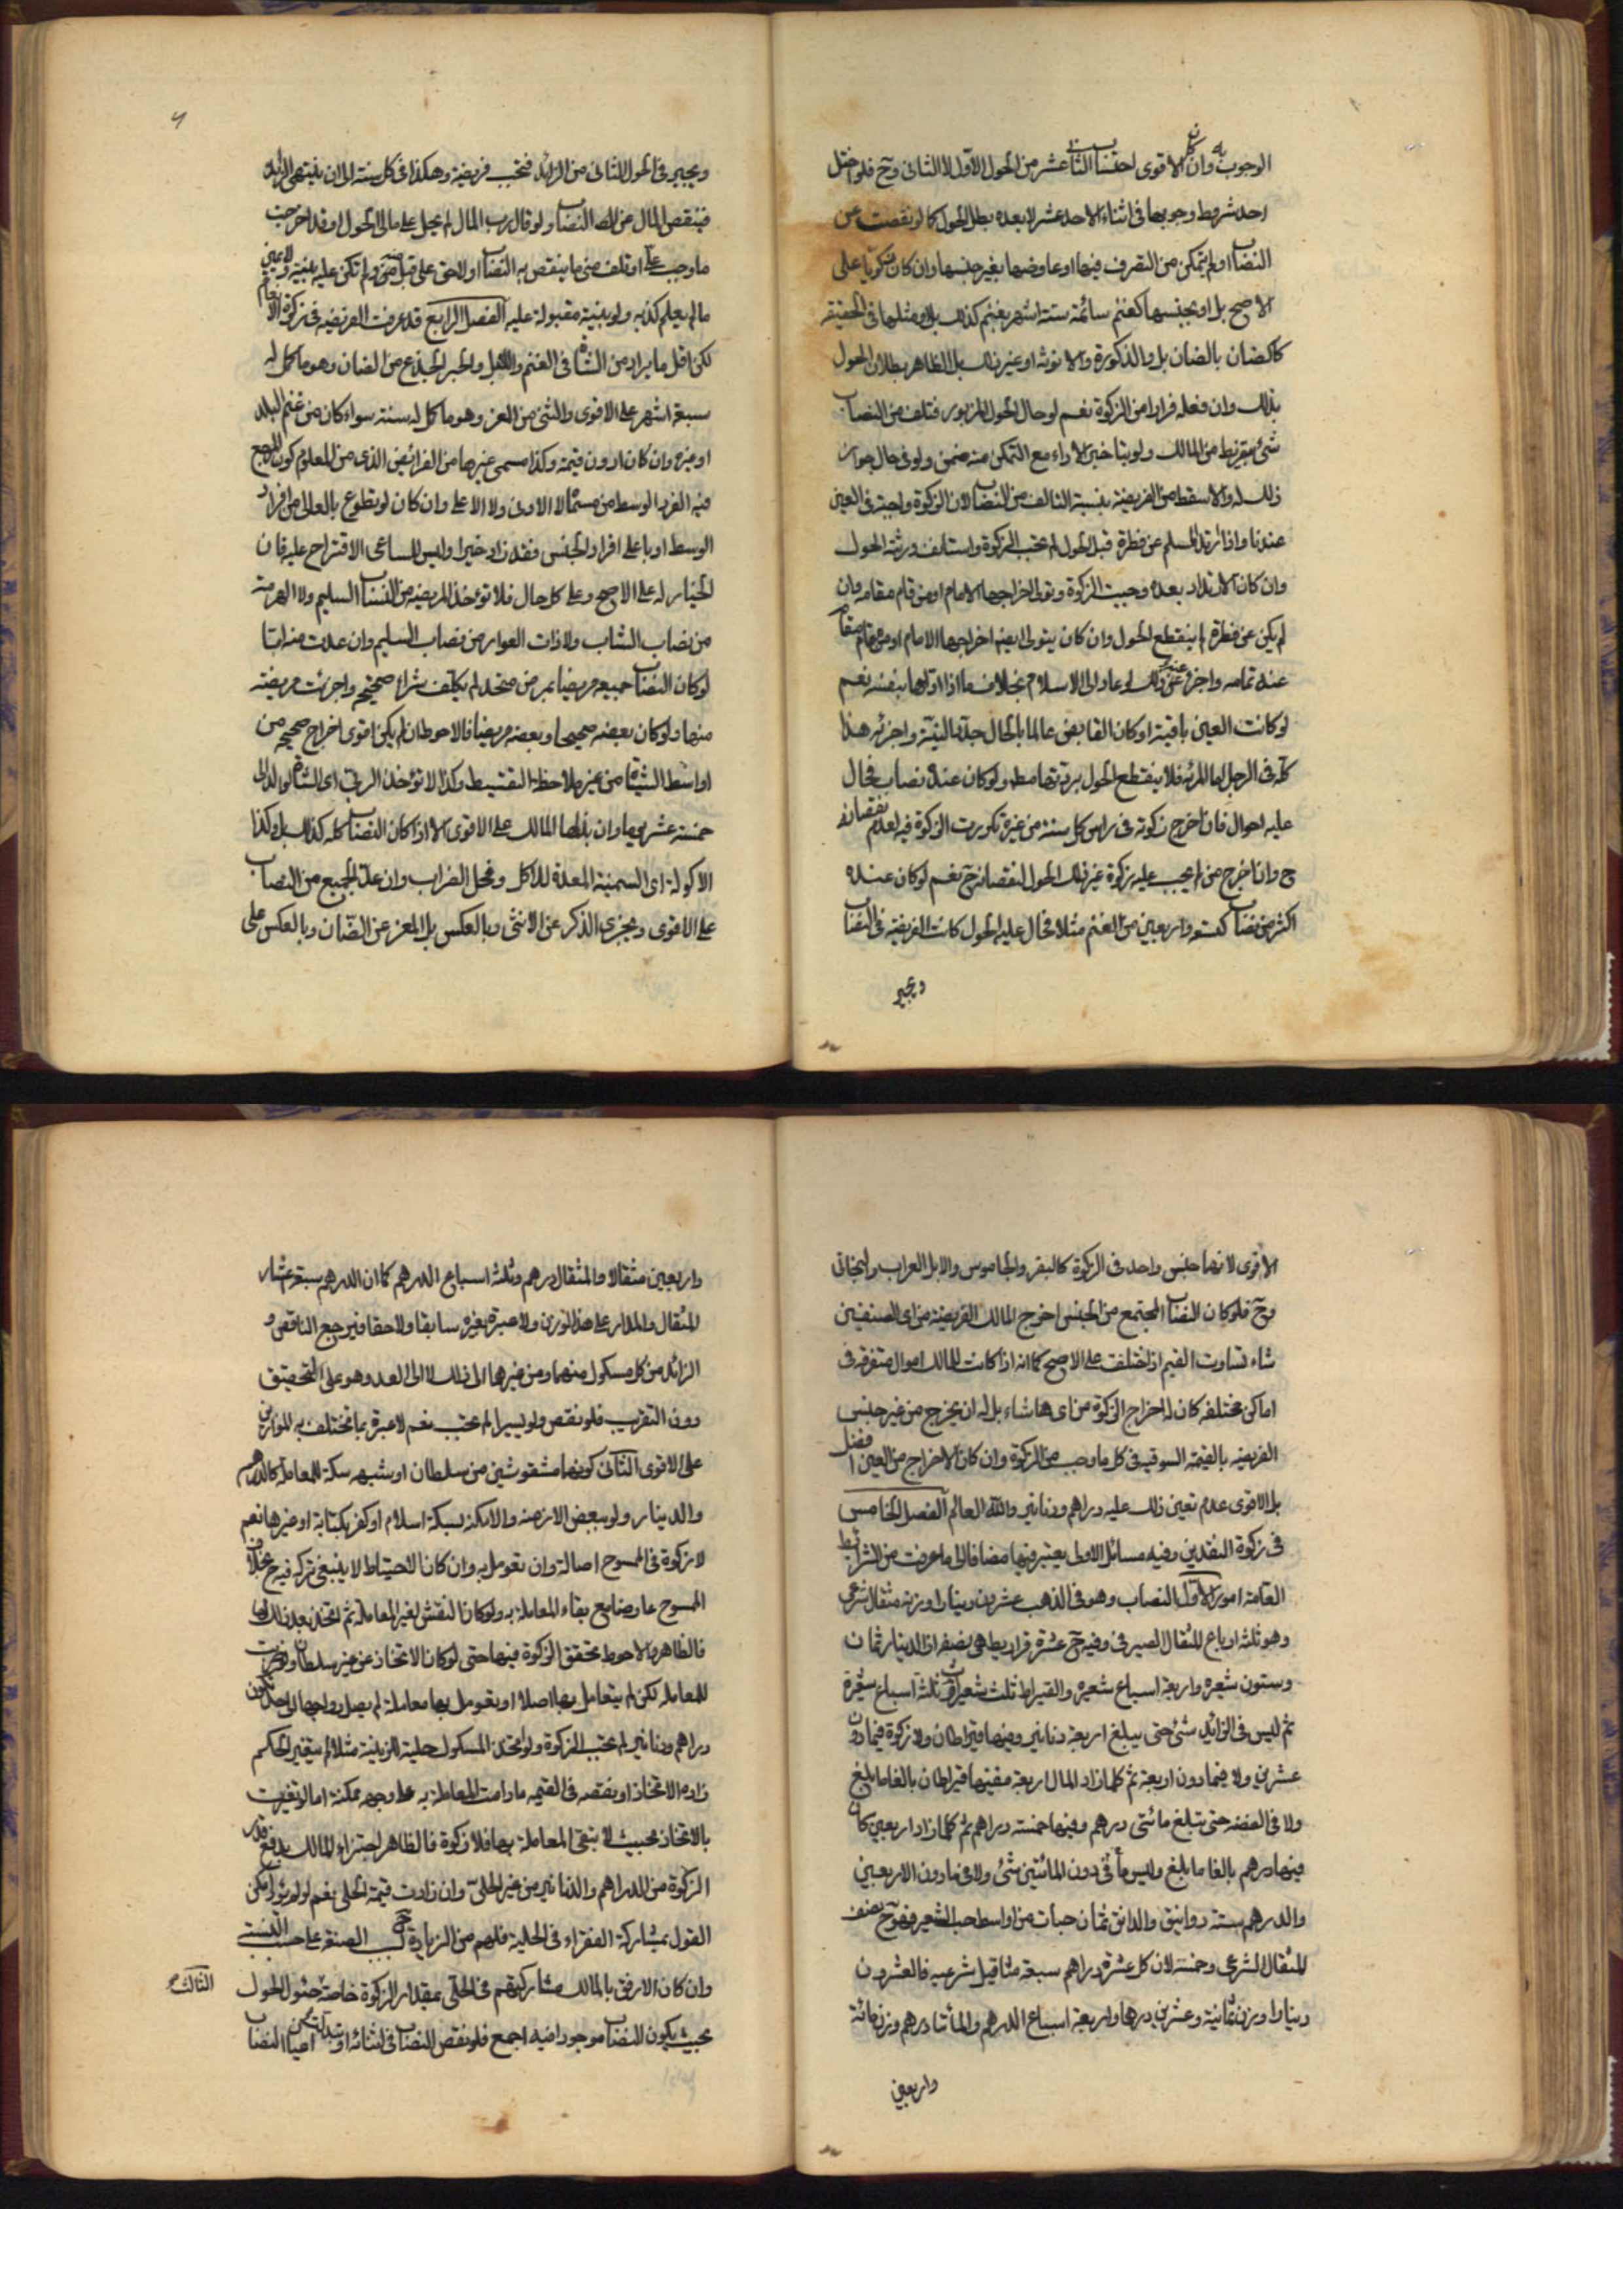 الوجوب به وان كان الاقوى احتساب الثاني عشر من الحول الاول لا الثاني وح فلو اختل
احد شروط وجوبها في اثناء الاحد عشر لا بعده بطل الحول كما لو نقصت عن
النصاب او لم يتمكن من التصرف فيها او عاوضها بغير جنسها وان كان زكويا على
الاصح بل او بجنسها كغنم سائمة ستة اشهر بغنم كذلك بل او مثلها في الحقيقة
كالضان بالضان بل والذكورة والانوثة او غير ذلك بل الظاهر بطلان الحول
بذلك وان فعله فرارا من الزكوة نعم لو حال الحول المزبور فتلف من النصاب
شئ بتفريط من المالك ولو بتاخير الاداء مع التمكن منه ضمن ولو في حال جواز
ذلك له والا سقط من الفريضة بنسبة التالف من النصاب لان الزكوة واجبة في العين
عندنا واذا ارتد المسلم عن فطرة قبل الحول لم تجب الزكوة واستانف ورثته الحول
وان كان الارتداد بعده وجبت الزكوة وتولى اخراجها الامام او من قام مقامه وان
لم يكن عن فطرة لم ينقطع الحول وان كان يتولى ايضا اخراجها الامام او من قام مقامه
عند تمامه واجزء عنه وكذا لو عاد الى الاسلام بخلاف ما اذا اداها بنفسه نعم
لو كانت العين باقية او كان القابض عالما بالحال جدد النية واجزئه هذا
كله في الرجل اما المرئة فلا ينقطع الحول بردتها مطلقا ولو كان عنده نصاب فحال
عليه احوال فان اخرج زكوته في راس كل سنة من غيره تكررت الزكوة فيه لعدم نقصانه
ح وان اخرج منه لم يجب عليه زكوة غير ذلك الحول لنقصانه ح نعم لو كان عنده
اكثر من نصاب كستة واربعين من الغنم مثلا فحال عليه الحول كانت الفريضة في النصاب
ويجبر
ويجبر في الحول الثاني من الزائد فتجب فريضة وهكذا في كل سنة الى ان ينتهي الزايد
فينقص المال عن النصاب ولو قال رب المال لم يحل على مالي الحول او قد اخرجت
ما وجب علي او تلف مني ما ينقص به النصاب او لا حق علي قبل منه ولم تكن عليه بينة ولا يمين
ما لم يعلم كذبه ولو ببينة مقبولة عليه الفصل الرابع قد عرفت الفريضة في زكوة الانعام
لكن اقل ما يراد من الشاة في الغنم والابل والجبر الجذع من الضان وهو ما كمل له
سبعة اشهر على الاقوى والثني من المعز وهو ما كمل له سنة سواء كان من غنم البلد
او غيره وان كان ادون قيمة وكذا مسمى غيرها من الفرائض الذي من المعلوم كون المرجع
فيه الفرد الوسط من مسماه لا الادنى ولا الاعلى وان كان لو تطوع بالعالي من افراد
الوسط او باعلى افراد الجنس فقد زاد خيرا وليس للساعي الاقتراح عليه فان
الخيار له على الاصح وعلى كل حال فلا تؤخذ المريضة من النصاب السليم ولا الهرمة
من نصاب الشاب ولا ذات العوار من نصاب السليم وان عدت منه اما
لو كان النصاب جميعه مريضا بمرض متحد لم يكلف شراء صحيحة واجزئت مريضة
منها ولو كان بعضه صحيحا وبعضه مريضا فالاحوط ان لم يكن اقوى اخراج صحيحة من
اواسط الشياة من غير ملاحظة التقسيط وكذا لا تؤخذ الربى اي الشاة الوالد الى
خمسة عشر يوما وان بذلها المالك على الاقوى الا اذا كان النصاب كله كذلك بل وكذا
الاكولة اي السمينة المعدة للاكل وفحل الضراب وان عد الجميع من النصاب
على الاقوى ويجزي الذكر عن الانثى وبالعكس بل المعز عن الضان وبالعكس على
الاقوى لانهما جنس واحد في الزكوة كالبقر والجاموس والابل العراب والبخاتي
وح فلو كان النصاب المجتمع من الجنس اخرج المالك الفريضة من اي الصنفين
شاء تساوت القيم او اختلفت على الاصح كما انه اذا كانت للمالك اموال متفرقة في
اماكن مختلفة كان له اخراج الزكوة من ايها شاء بل له ان يخرج من غير جنس
الفريضة بالقيمة السوقية في كل ما وجب من الزكوة وان كان الاخراج من العين افضل
بل الاقوى عدم تعين ذلك عليه دراهم ودنانير والله العالم الفصل الخامس
في زكوة النقدين وفيه مسائل الاولى يعتبر فيها مضافا الى ما عرفت من الشرائط
العامة امور الاول النصاب وهو في الذهب عشرون دينارا وزنه مثقال شرعي
وهو ثلثة ارباع المثقال الصيرفي وفيه ح عشرة قراريط هي نصف الدينار ثمان
وستون شعيرة واربعة اسباع شعيرة والقيراط ثلث شعيرات وثلثة اسباع شعيرة
ثم ليس في الزائد شئ حتى يبلغ اربعة دنانير وفيها قيراطان ولا زكوة فيما دون
عشرين ولا فيما دون اربعة ثم كلما زاد المال اربعة ففيها قيراطان بالغا ما بلغ
ولا في الفضة حتى تبلغ مائتي درهم وفيها خمسة دراهم ثم كلما زاد اربعين كان
فيها درهم بالغا ما بلغ وليس في دون المائتين شئ ولا فيما دون الاربعين
والدرهم ستة دوانيق والدانق ثمان حبات من اواسط حب الشعير فهو ح نصف
المثقال الشرعي وخمسه لان كل عشرة دراهم سبعة مثاقيل شرعية فالعشرون
دينارا وزن ثمانية وعشرين درهما واربعة اسباع الدرهم والمأتا درهم وزن مائة
واربعين
واربعين مثقالا والمثقال درهم وثلثة اسباع الدرهم كما ان الدرهم سبعة اعشار
المثقال والمدار على هذا الوزن ولا عبرة بغيره سابقا ولاحقا فيرجع الناقص و
الزائد من كل مسكوك منهما ومن غيرها الى ذلك لا الى العدد وهو على التحقيق
دون التقريب فلو نقص ولو يسيرا لم تجب نعم لا عبرة بما تختلف به الموازين
على الاقوى الثاني كونها منقوشين من سلطان او شبهه سكة للمعاملة كالدراهم
والدينار ولو ببعض الازمنة والامكنة بسكة اسلام او كفر بكتابة او غيرها نعم
لا زكوة في الممسوح اصالة وان تعومل به وان كان الاحتياط لا ينبغي تركه فيه ح بخلاف
الممسوح عارضا مع بقاء المعاملة به ولو كان النقش لغير المعاملة ثم اتخذ بعد ذلك لها
فالظاهر والاحوط تحقق الزكوة فيها حتى لو كان الاتخاذ عن غير سلطان ولو ضربت
للمعاملة لكن لم يتعامل بها اصلا او تعومل بها معاملة لم يصل رواجها الى حد تكون
دراهم ودنانير لم تجب الزكوة ولو اتخذ المسكوك حلية للزينة مثلا لم يتغير الحكم
زاده الاتخاذ او نقصه في القيمة ما دامت المعاملة به على وجه ممكنة اما لو تغيرت
بالاتخاذ بحيث لا تبقى المعاملة بها فلا زكوة فالظاهر اجتزاء المالك بدفع قدر
الزكوة من الدراهم والدنانير من غير الحلي وان زادت قيمة الحلي نعم لو لم يؤد امكن
القول بمشاركة الفقراء في الحلية فلهم من الزيادة ح بسبب الصنعة على حسب النسبة
وان كان الارفق بالمالك مشاركتهم في الحلي بمقدار الزكوة خاصة حئول الحول
الثالث
بحيث يكون النصاب موجودا فيه اجمع فلو نقص النصاب في اثنائه او تبدلت اعيان النصاب